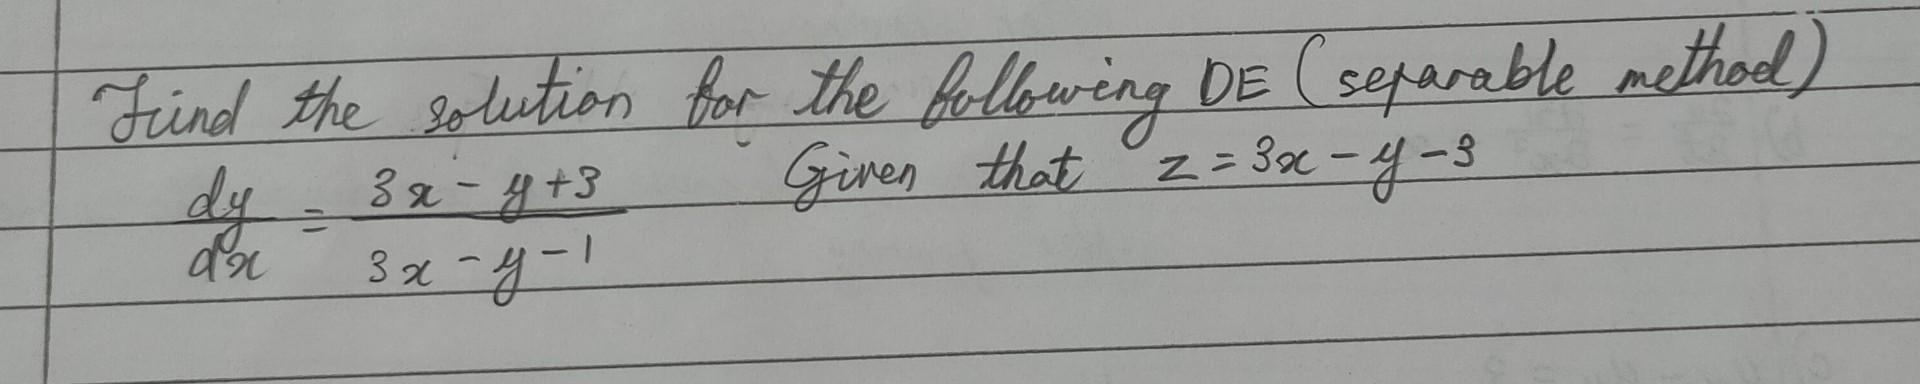 Find the solution for the following DE (separable method)
dy/dx = (3x - y + 3)/(3x - y - 1) Given that z = 3x - y - 3